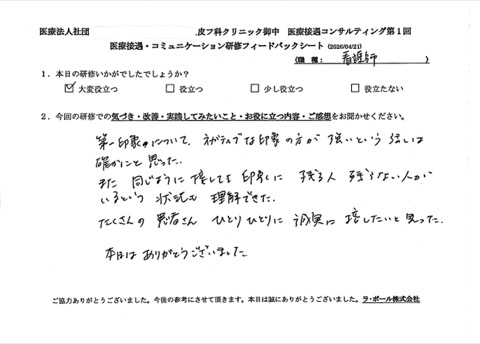 医療法人社団 皮フ科クリニック御中 医療接遇コンサルティング第1回
医療接遇・コミュニケーション研修フィードバックシート (2026/04/21)
(職 種: 看護師 )
1.本日の研修いかがでしたでしょうか?
☑大変役立つ □役立つ □少し役立つ □役立たない
2.今回の研修での気づき・改善・実践してみたいこと・お役に立つ内容・ご感想をお聞かせください。
第一印象について、ネガティブな印象の方が強いという話は
確かにと思った。
また 同じように接しても 印象に 残る人 残らない人が
いるという 状況も 理解できた。
たくさんの 患者さん ひとりひとりに 誠実に 接したいと思った。
本日は ありがとうございました
ご協力ありがとうございました。今後の参考にさせて頂きます。本日は誠にありがとうございました。ラ・ポール株式会社